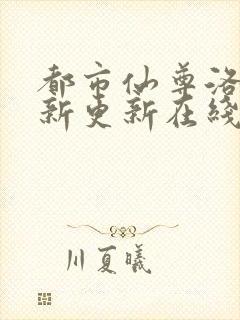 都市仙尊洛
新更新在线
川夏曦